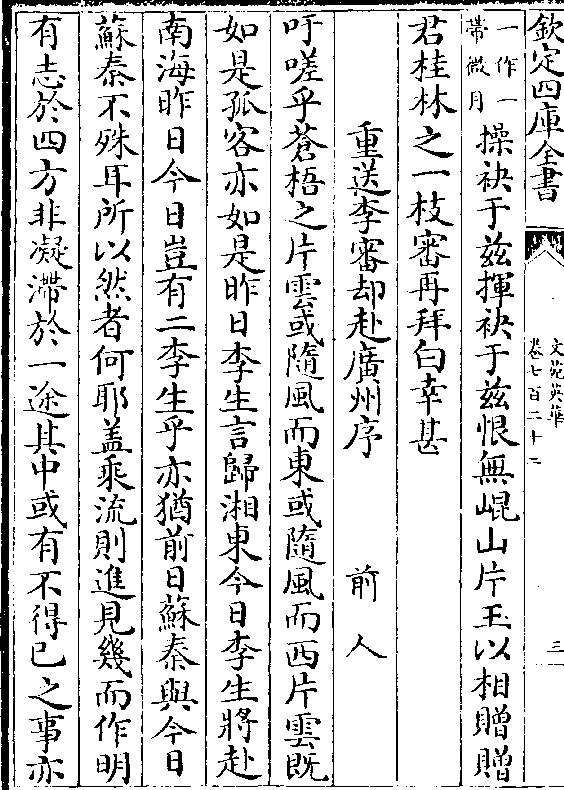 欽定四庫全書
文苑英華
卷七百二十二
三
一作一
帶微月
操袂于兹揮袂于兹恨無崐山片玉以相贈贈
君桂林之一枝審再拜白幸甚
重送李審却赴廣州序 前人
吁嗟乎蒼梧之片雲或隨風而東或隨風而西片雲既
如是孤客亦如是昨日李生言歸湘東今日李生將赴
南海昨日今日豈有二李生乎亦猶前日蘇秦與今日
蘇秦不殊耳所以然者何耶盖乘流則進見幾而作明
有志於四方非凝滯於一途其中或有不得已之事亦